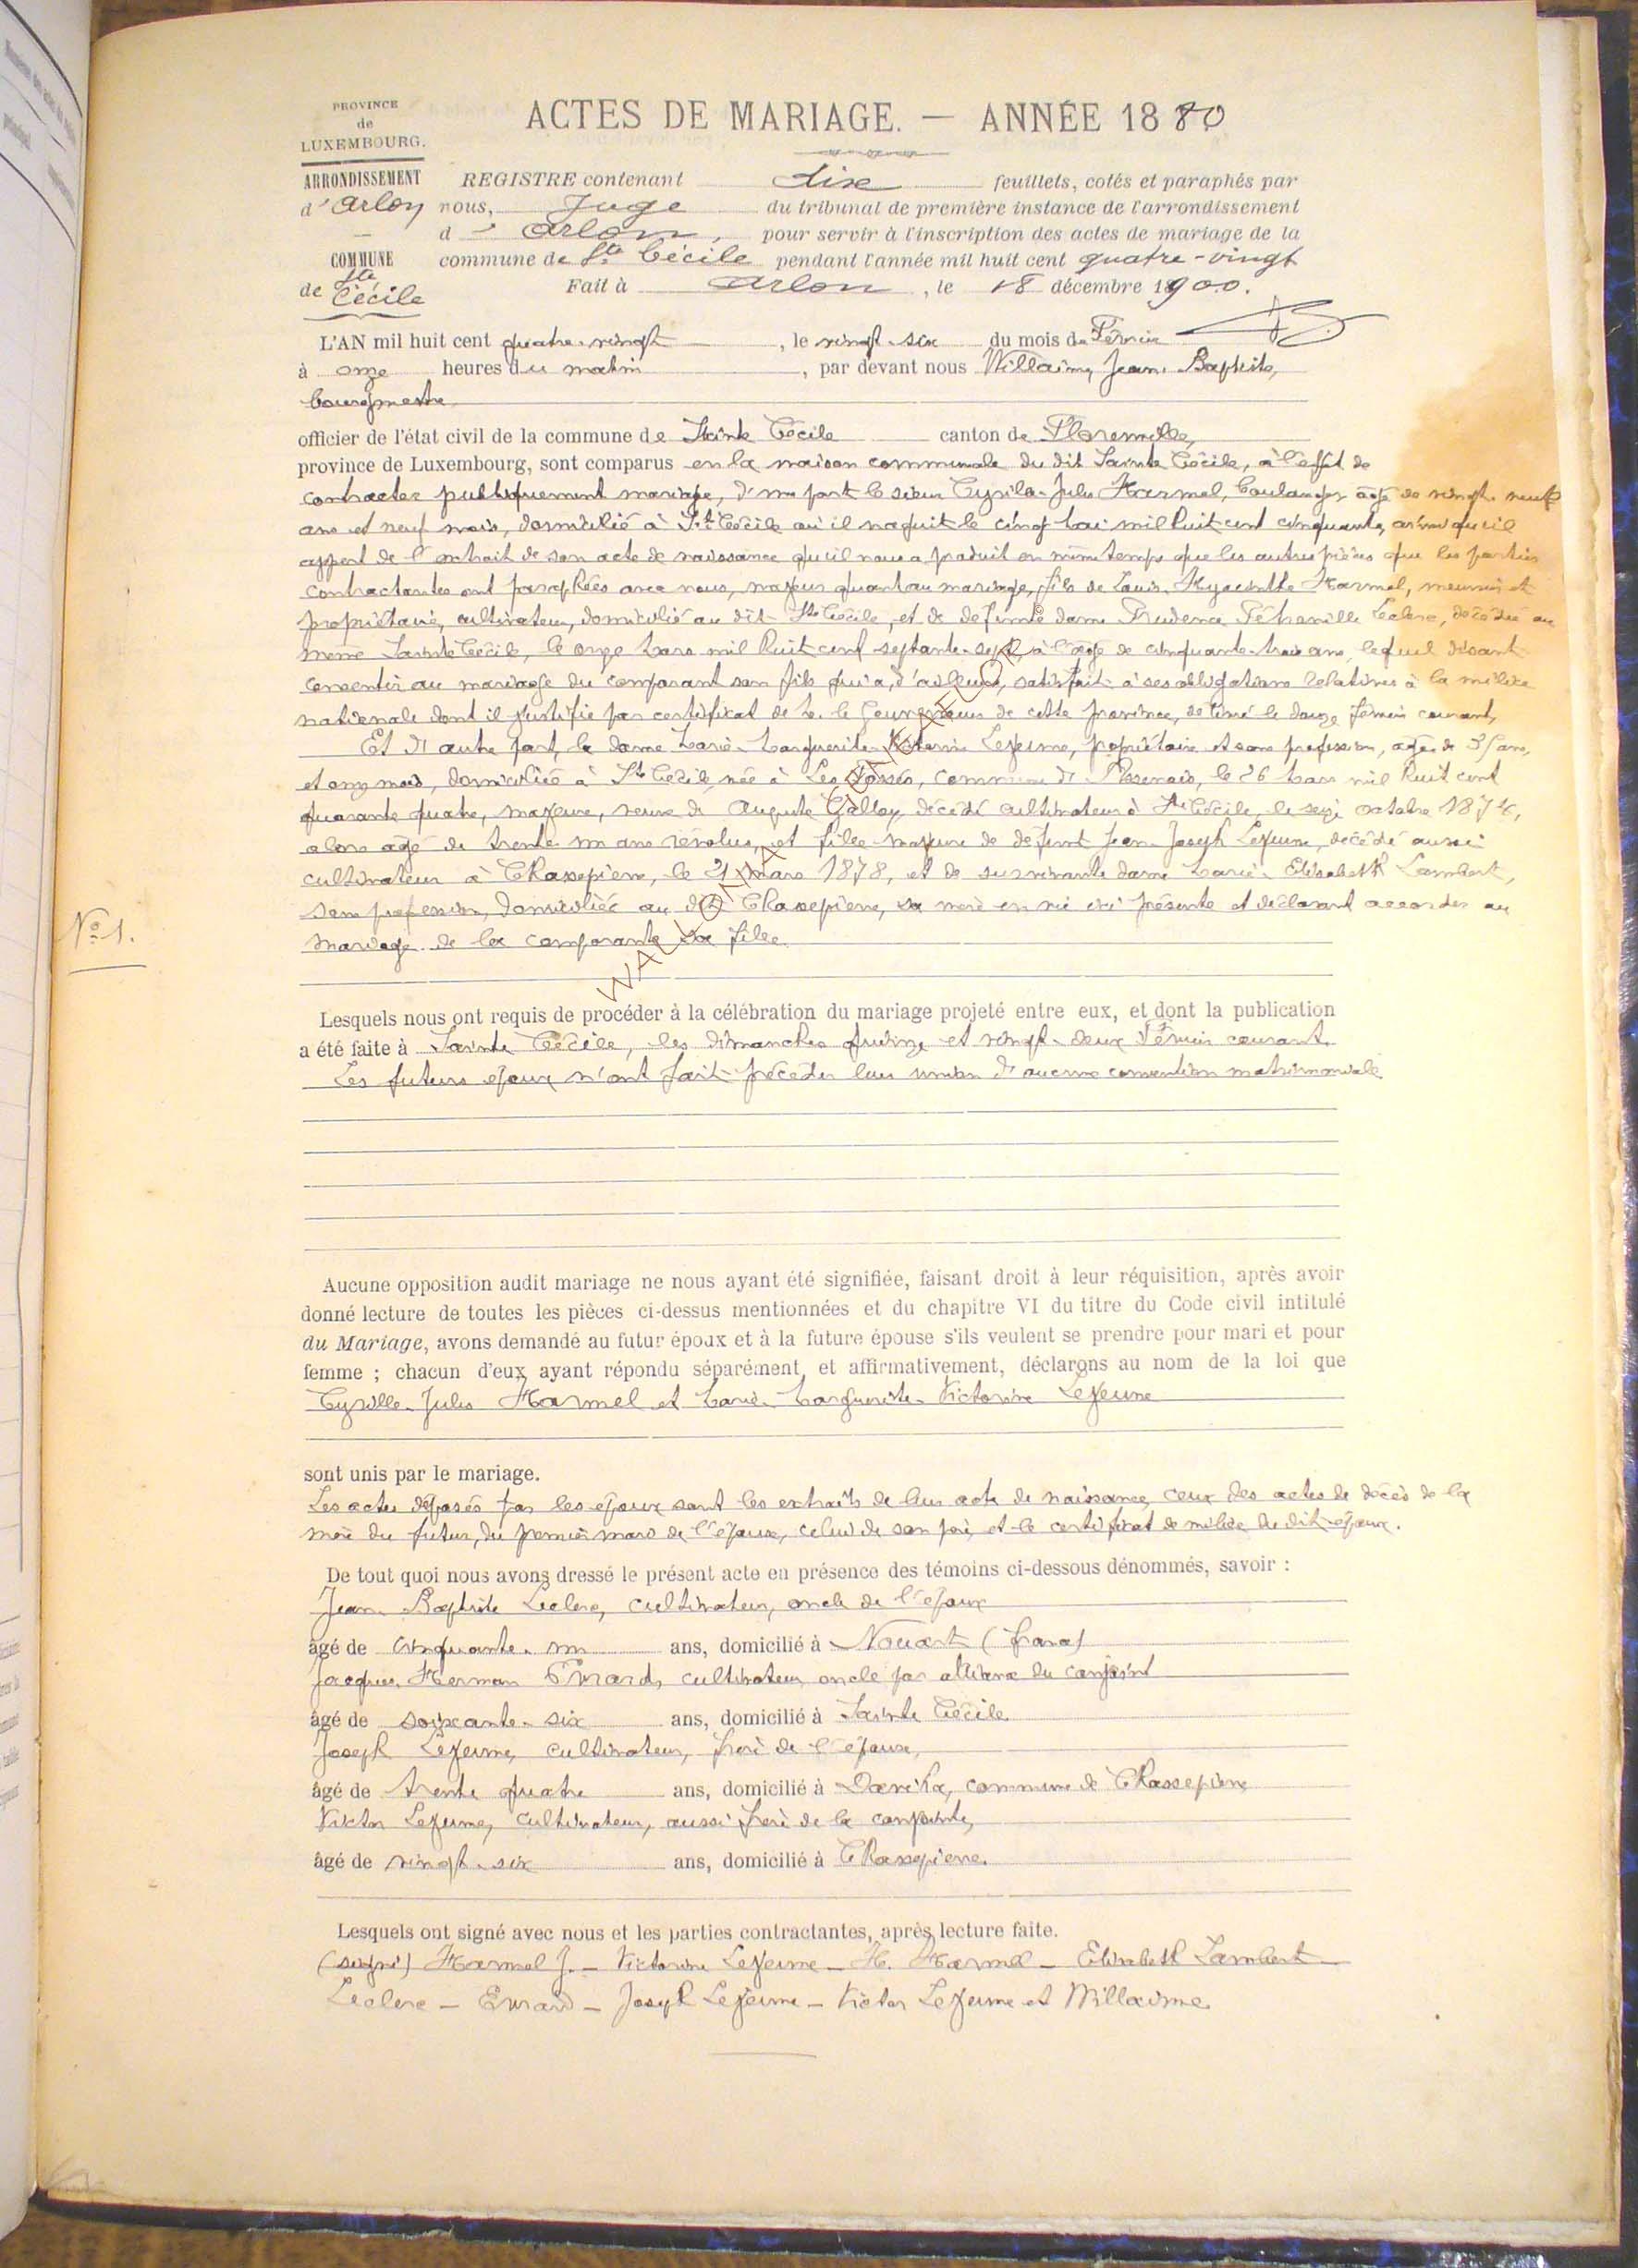 PROVINCE
de
LUXEMBOURG.
ARRONDISSEMENT
d'Arlon
COMMUNE
de Ste Cécile
ACTES DE MARIAGE. — ANNÉE 1880
REGISTRE contenant dix feuillets, cotés et paraphés par
nous, Juge du tribunal de première instance de l'arrondissement
d'Arlon, pour servir à l'inscription des actes de mariage de la
commune de Ste Cécile pendant l'année mil huit cent quatre-vingt
Fait à Arlon, le 18 décembre 1900.
L'AN mil huit cent quatre-vingt, le vingt-six du mois de Février
à onze heures du matin, par devant nous Willaime, Jean-Baptiste,
bourgmestre
officier de l'état civil de la commune de Sainte Cécile canton de Florenville,
province de Luxembourg, sont comparus en la maison communale du dit Sainte Cécile, à l'effet de
contracter publiquement mariage, d'une part le sieur Cyrille-Jules Harmel, boulanger âgé de vingt-neuf
ans et neuf mois, domicilié à Ste Cécile où il naquit le cinq mai mil huit cent cinquante, ainsi qu'il
appert de l'extrait de son acte de naissance qu'il nous a produit en même temps que les autres pièces que les parties
contractantes ont paraphées avec nous, majeur quant au mariage, fils de Louis-Hyacinthe Harmel, meunier et
propriétaire, cultivateur, domicilié au dit Ste Cécile, et de defunte dame Prudence Pétronille Leclerc, décédée au
même Sainte Cécile, le onze mars mil huit cent septante-sept, à l'âge de cinquante-trois ans, lequel disant
consentir au mariage du comparant son fils qui a, d'ailleurs, satisfait à ses obligations relatives à la milice
nationale dont il justifie par certificat de M. le Gouverneur de cette province, délivré le douze février courant,
Et d'autre part, la dame Marie-Marguerite-Victorine Lejeune, propriétaire et sans profession, âgée de 35 ans,
et onze mois, domiciliée à Ste Cécile, née à Les Fossés, commune d'Assenois, le 26 mars mil huit cent
quarante quatre, majeure, veuve de Auguste décédé cultivateur à Ste Cécile, le seize octobre
alors âgé de trente-un ans révolus, et fille majeure de défunt Jean-Joseph Lejeune, décédé aussi
cultivateur à Chassepierre, le 21 mars 1878, et de survivante dame Marie-Elisabeth Lambert,
sans profession, domiciliée au dit Chassepierre, sa mère en vie ici présente et déclarant accorder au
mariage de la comparante sa fille.
No 1.
Lesquels nous ont requis de procéder à la célébration du mariage projeté entre eux, et dont la publication
a été faite à Sainte Cécile, les dimanches quinze et vingt-deux Février courant.
Les futurs époux n'ont fait précéder leur union d'aucune convention matrimoniale
Aucune opposition audit mariage ne nous ayant été signifiée, faisant droit à leur réquisition, après avoir
donné lecture de toutes les pièces ci-dessus mentionnées et du chapitre VI du titre du Code civil intitulé
du Mariage, avons demandé au futur époux et à la future épouse s'ils veulent se prendre pour mari et pour
femme ; chacun d'eux ayant répondu séparément et affirmativement, déclarons au nom de la loi que
Cyrille-Jules Harmel et Marie-Marguerite-Victorine Lejeune
sont unis par le mariage.
Les actes déposés par les époux sont les extraits de leur acte de naissance, ceux des actes de décès de la
mère du futur, du premier mari de l'épouse, celui de son père, et le certificat de milice du dit époux.
De tout quoi nous avons dressé le présent acte en présence des témoins ci-dessous dénommés, savoir :
Jean-Baptiste Leclerc, cultivateur, oncle de l'époux
âgé de cinquante-un ans, domicilié à Nouart (France)
Jacques-Herman Evrard, cultivateur, oncle par alliance du conjoint
âgé de soixante-six ans, domicilié à Sainte Cécile
Joseph Lejeune, cultivateur, frère de l'épouse,
âgé de trente quatre ans, domicilié à commune de Chassepierre
Victor Lejeune, cultivateur, aussi frère de la conjointe,
âgé de vingt-six ans, domicilié à Chassepierre.
Lesquels ont signé avec nous et les parties contractantes, après lecture faite.
(signé) Harmel J. — Victorine Lejeune — H. Harmel — Elisabeth Lambert —
Leclerc — Evrard — Joseph Lejeune — Victor Lejeune et Willaime